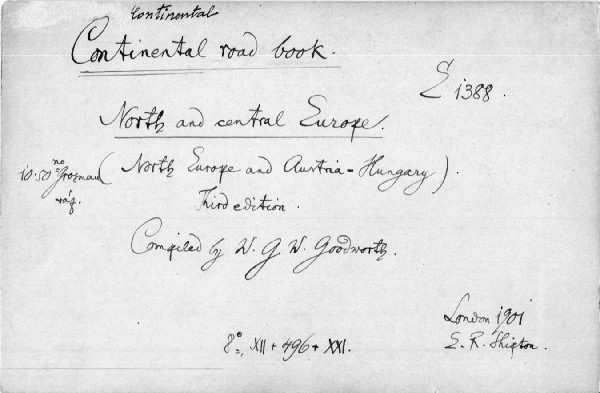 Continental
Continental road book.
E 1388.
North and central Europe.
(North Europe and Austria-Hungary).
10.50
Third edition.
Compiled by W. G. W. Goodworth.
London 1901
E. R. Shipton.
8°, XII + 496 + XXI.